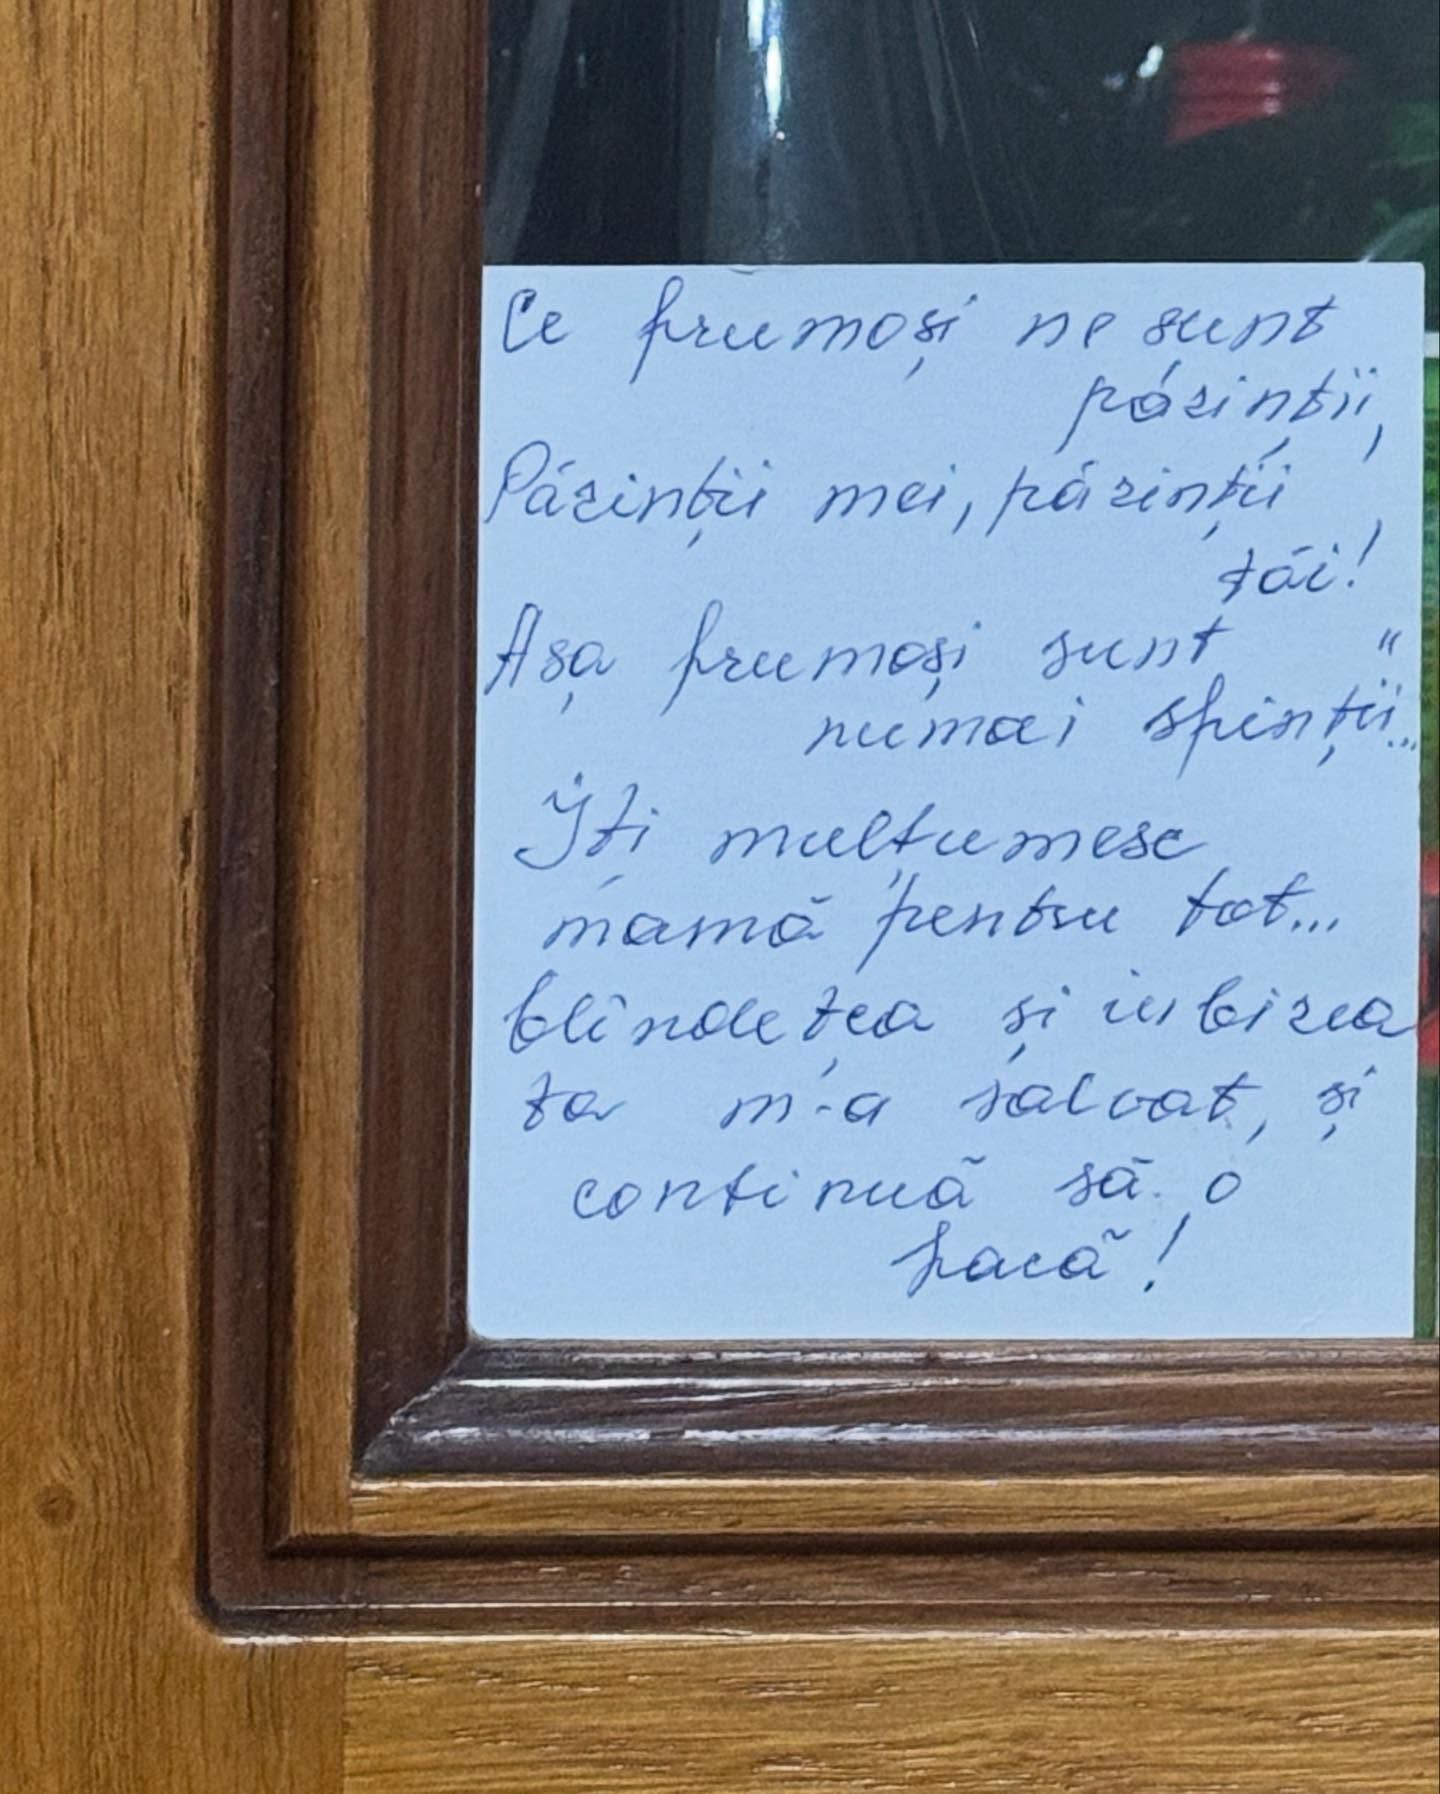 Ce frumoși ne sunt
părinții,
Părinții mei, părinții
tăi!
Așa frumoși sunt "
numai sfinții...
Îți mulțumesc
mamă pentru tot...
blîndețea și iubirea
ta m-a salvat, și
continuă să o
facă!